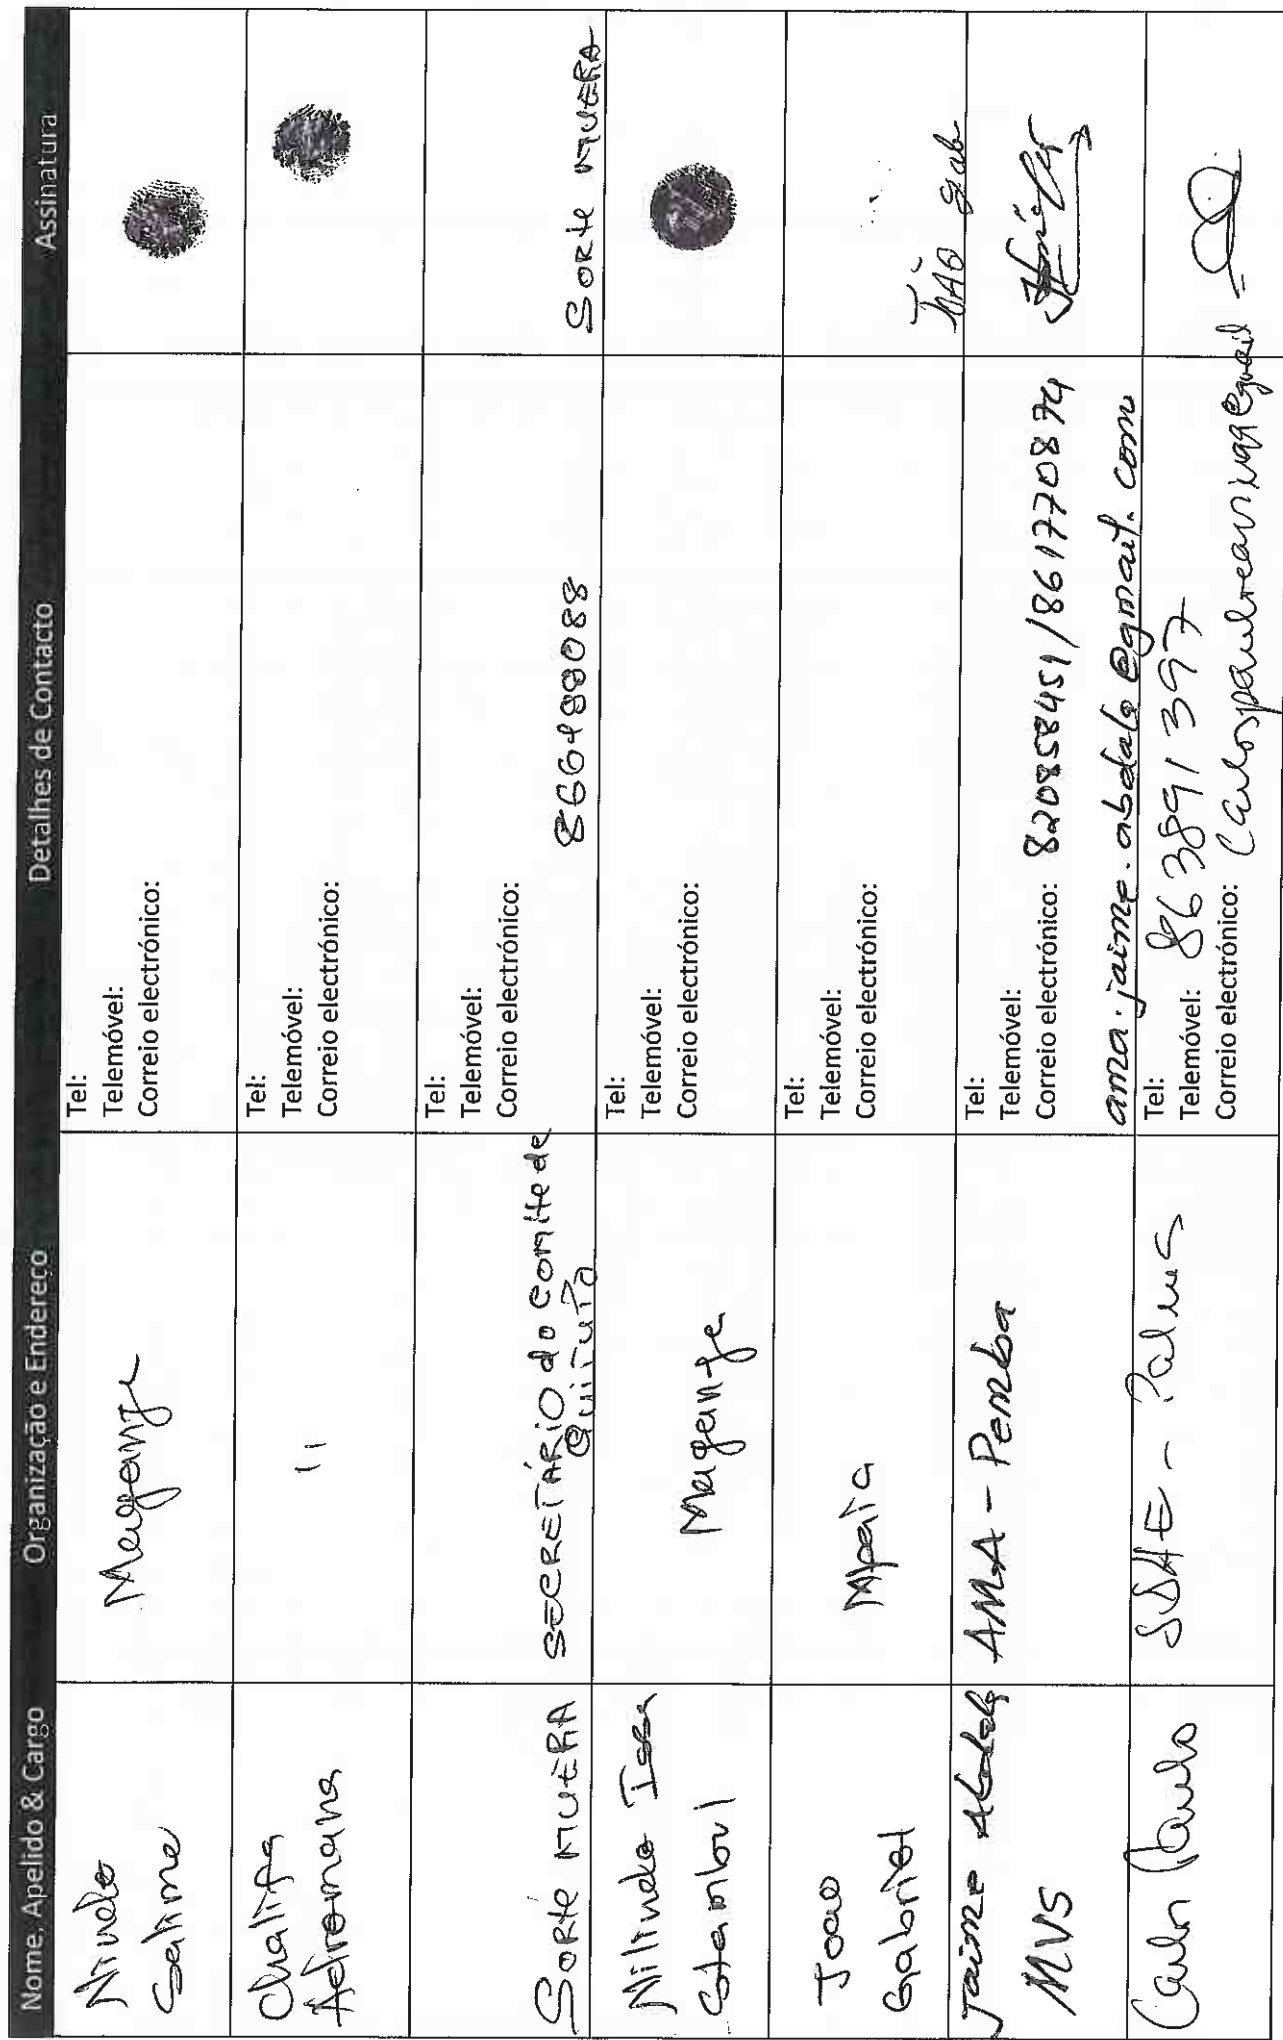 Nome, Apelido & Cargo Organização e Endereço Detalhes de Contacto Assinatura
Salime
Maganja
Tel:
Telemóvel:
Correio electrónico:
Chalifa
"
Tel:
Telemóvel:
Correio electrónico:
SORTE MUÉRA
SECRETÁRIO do comite de
Quitupo
Tel:
Telemóvel:
Correio electrónico:
SORTE MUÉRA
Issa
Maganja
Tel:
Telemóvel:
Correio electrónico:
Joao
Gabriel
Tel:
Telemóvel:
Correio electrónico:
Jaime Abdala
MVS
AMA - Pemba
Tel:
Telemóvel:
Correio electrónico: 820858451/861770874
ama.jaime.abdala@gmail.com
Paulo
Tel:
Telemóvel: 863891397
Correio electrónico: